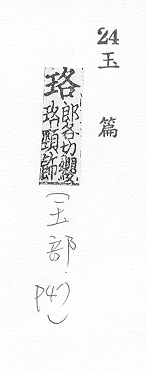 24
玉篇
珞
郎各切纓
珞頸飾
(玉部.
P47)